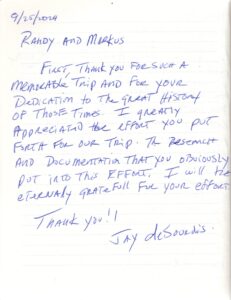 9/25/2024
Randy and Markus
First, Thank you for such a
memorable Trip and for your
Dedication to the great History
of those times. I greatly
appreciated the effort you put
forth for our trip. The research
and documentation that you obviously
put into this effort. I will be
eternally grateful for your effort.
Thank you!!
Jay deSourdis.